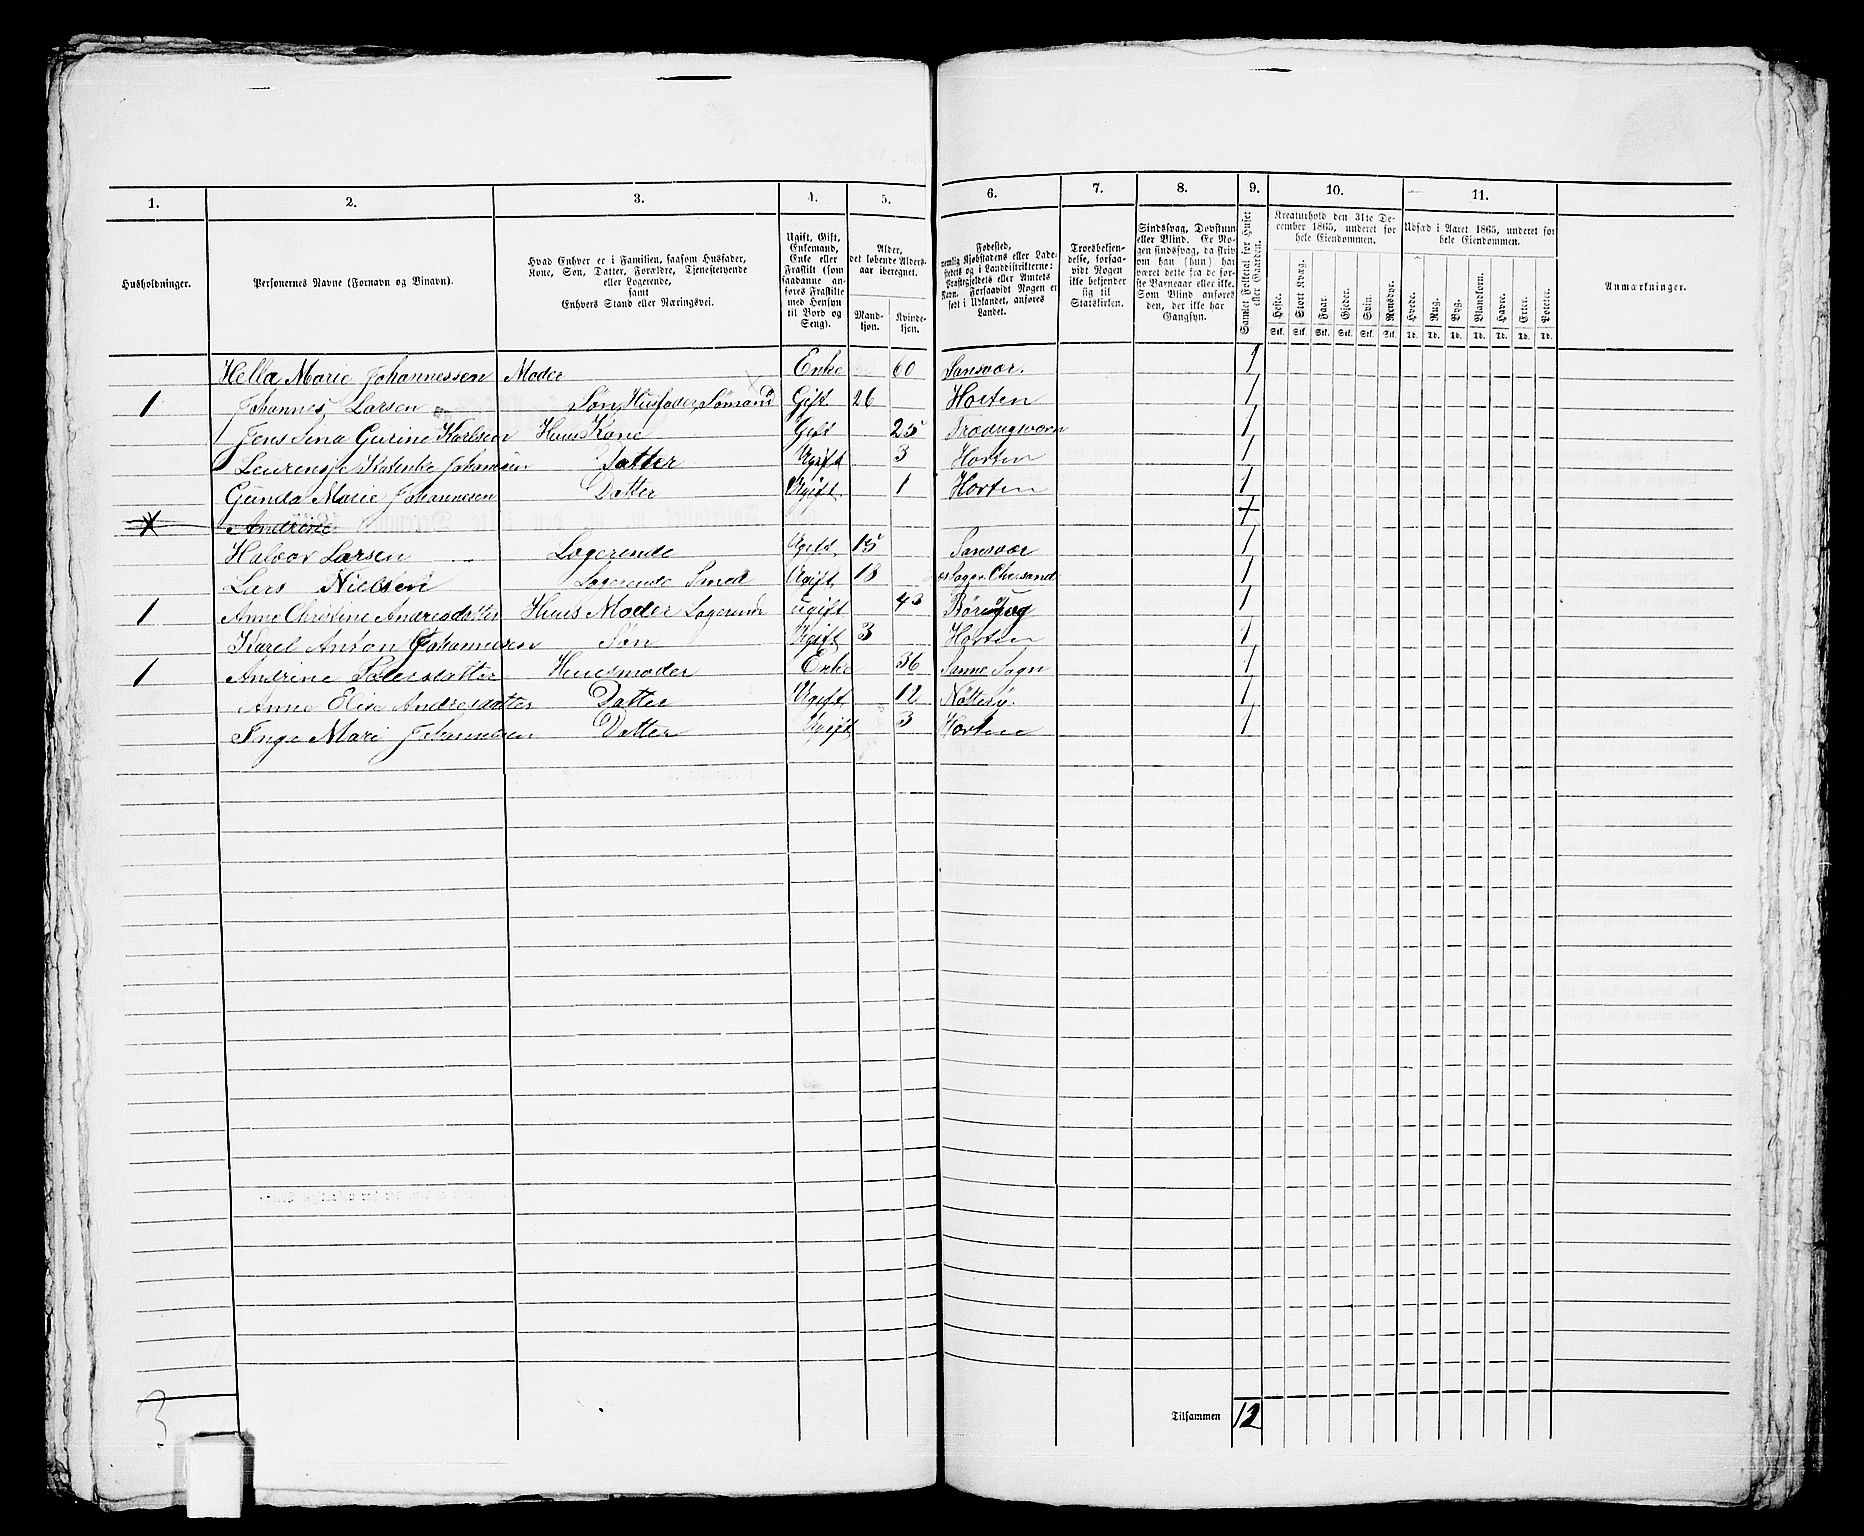 1. 2. 3. 4. 5. 6. 7. 8. 9. 10. 11.
Husholdninger.
Personernes Navne (Fornavn og Binavn).
Hvad Enhver er i Familien, saasom Husfader,
Kone, Søn, Datter, Forældre, Tjenestetyende
eller Logerende,
samt
Enhvers Stand eller Næringsvei.
Ugift, Gift,
Enkemand,
Enke eller
Fraskilt (som
saadanne an-
føres Fraskilte
med Hensyn
til Bord og
Seng).
Alder,
det løbende Alders-
aar iberegnet.
Mand-
kjøn.
Kvinde-
kjøn.
Fødested,
nemlig Kjøbstadens eller Lade-
stedets og i Landdistrikterne:
Præstegjeldets eller Amtets
Navn. Forsaavidt Nogen er
født i Udlandet, anføres
Landet.
Troesbekjen-
delse, forsaa-
vidt Nogen
ikke bekjender
sig til
Statskirken.
Sindssvag, Døvstum
eller Blind. Er No-
gen sindssvag, da skriv
om han (hun) har
været dette fra de før-
ste Barneaar eller ikke.
Som Blind anføres
den, der ikke har
Gangsyn.
Samlet Folketal for Huset
eller Gaarden.
Kreaturhold den 31te De-
cember 1865, underet for
hele Eiendommen.
Heste. Stort Kvæg. Faar. Gjeder. Svin. Rensdyr.
Stk. Stk. Stk. Stk. Stk. Stk.
Udsæd i Aaret 1865, underet for
hele Eiendommen.
Hvede. Rug. Byg. Blandkorn. Havre. Erter. Poteter.
Td. Td. Td. Td. Td. Td. Td.
Anmærkninger.
Hella Marie Johannessen Moder Enke 60 Sansvær. 1
1 Johannes Larsen Søn, Husfader, Sømand Gift 26 Horten 1
Jens Sina Gurine Karlsen Huus Kone Gift 25 1
Johansen Datter Ugift 3 Horten 1
Gunda Marie Johannesen Datter Ugift 1 Horten 1
Andrine
Halvor Larsen Logerende Ugift 15 Sansvær 1
Lars Nielsen Logerende Smed Ugift 18 1
1 Anne Christine Andreasdatter Huus Moder Logerende ugift 43 1
Karel Anton Johannesen Søn Ugift 3 Horten 1
1 Andrine Huusmoder Enke 36 Sanne Sogn 1
Anne Elise Andreasdatter Datter Ugift 12 Nøtterø. 1
Inge Mari Johannesen Datter Ugift 3 Horten 1
Tilsammen 12
3